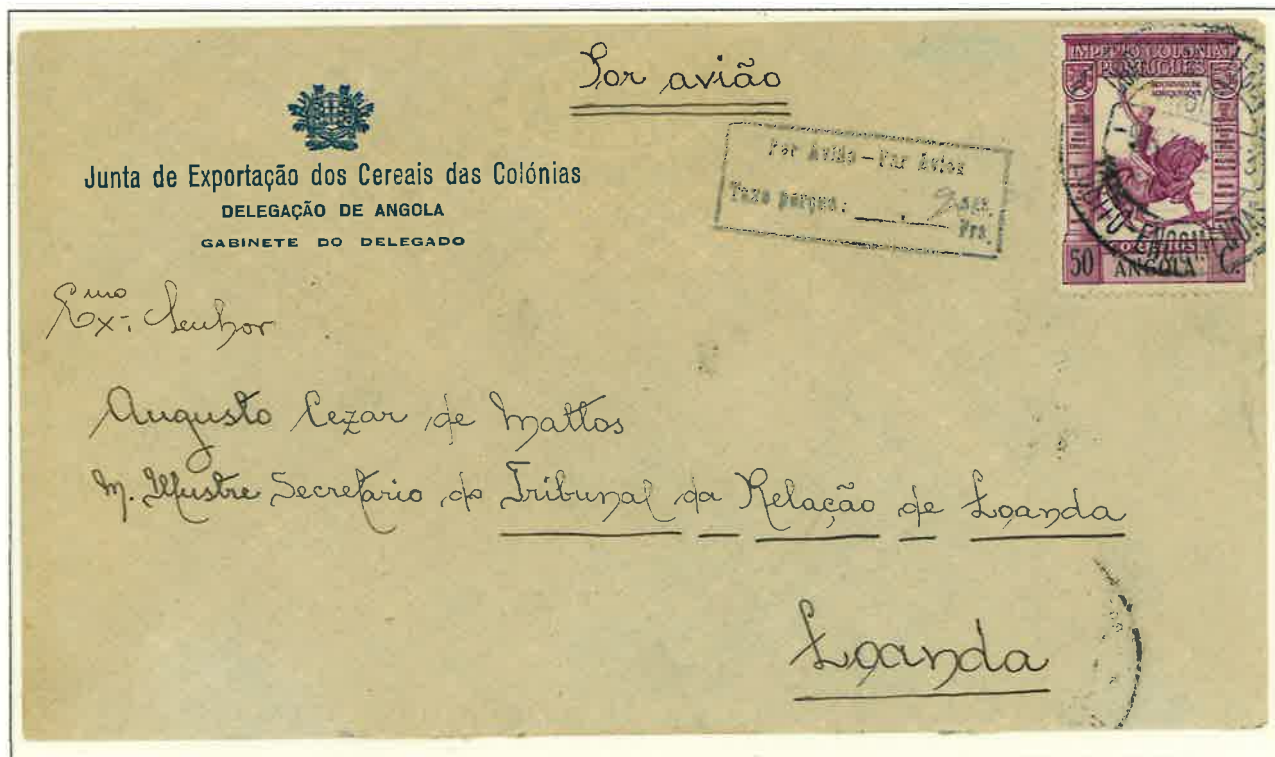 Por avião
Junta de Exportação dos Cereais das Colónias
DELEGAÇÃO DE ANGOLA
GABINETE DO DELEGADO
Por Avião – Par Avion
Taxe perçue:
Frs.
IMPÉRIO COLONIAL
PORTUGUÊS
CORREIOS
50 ANGOLA C.
Exmo. Senhor
Augusto Cezar de Mattos
M. Illustre Secretario do Tribunal da Relação de Loanda
Loanda